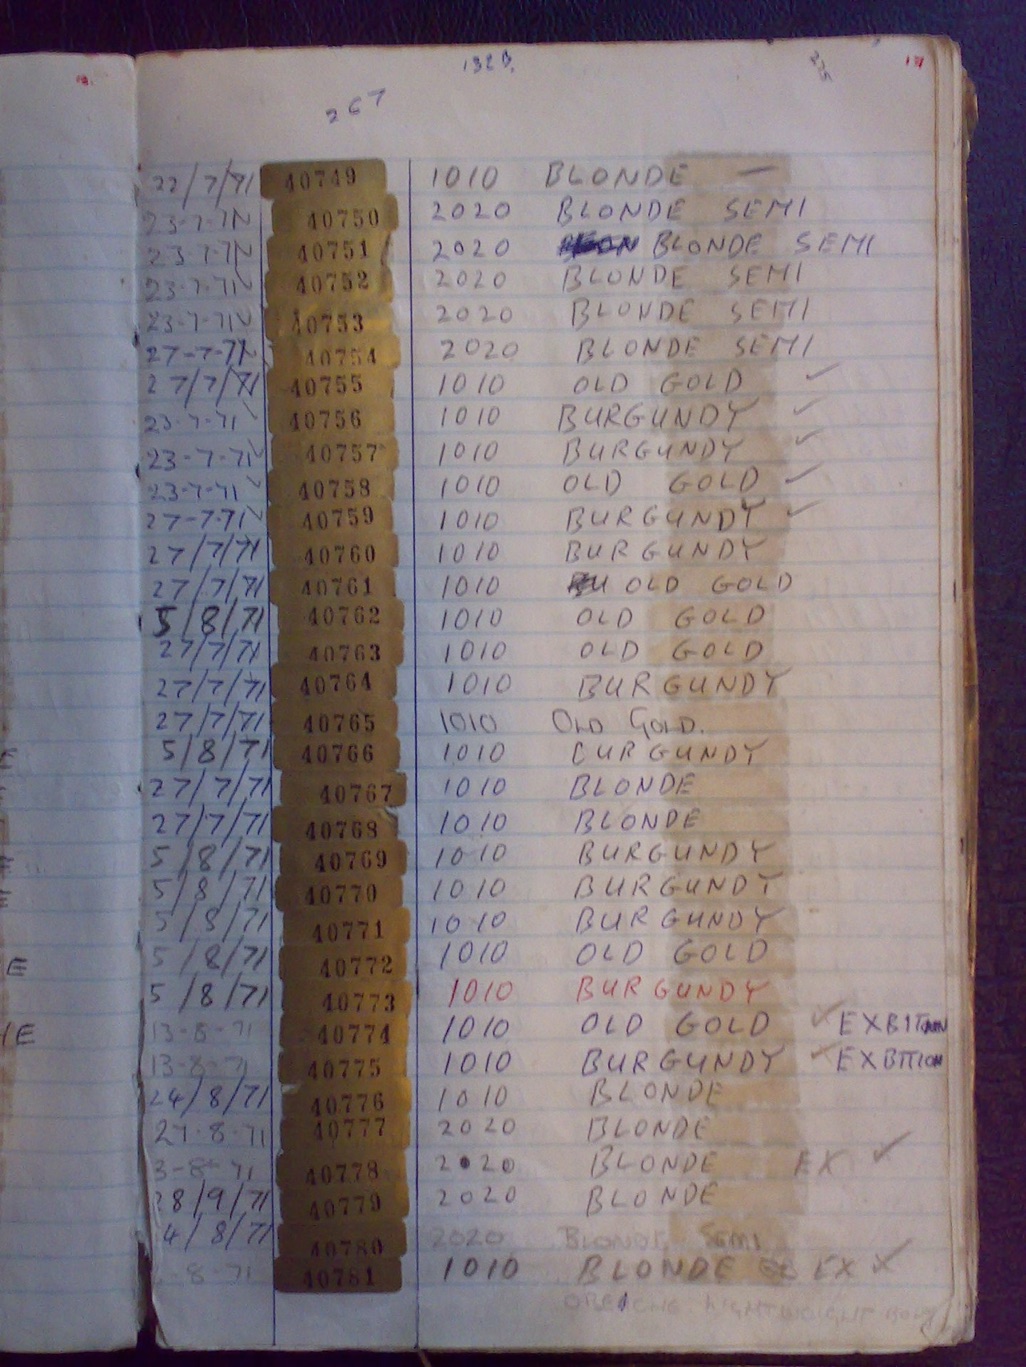 132B.
267
235
22/7/71 40749 1010 BLONDE —
23-7-71 40750 2020 BLONDE SEMI
23-7-71 40751 2020 BLONDE SEMI
23-7-71 40752 2020 BLONDE SEMI
23-7-71 40753 2020 BLONDE SEMI
27-7-71 40754 2020 BLONDE SEMI
27/7/71 40755 1010 OLD GOLD ✓
23-7-71 40756 1010 BURGUNDY ✓
23-7-71 40757 1010 BURGUNDY ✓
23-7-71 40758 1010 OLD GOLD ✓
27-7-71 40759 1010 BURGUNDY ✓
27/7/71 40760 1010 BURGUNDY
27/7/71 40761 1010 OLD GOLD
5/8/71 40762 1010 OLD GOLD
27/7/71 40763 1010 OLD GOLD
27/7/71 40764 1010 BURGUNDY
27/7/71 40765 1010 OLD GOLD.
5/8/71 40766 1010 BURGUNDY
27/7/71 40767 1010 BLONDE
27/7/71 40768 1010 BLONDE
5/8/71 40769 1010 BURGUNDY
5/8/71 40770 1010 BURGUNDY
5/8/71 40771 1010 BURGUNDY
5/8/71 40772 1010 OLD GOLD
5/8/71 40773 1010 BURGUNDY
13-8-71 40774 1010 OLD GOLD ✓
13-8-71 40775 1010 BURGUNDY ✓ EXBITION
24/8/71 40776 1010 BLONDE
27-8-71 40777 2020 BLONDE
3-8-71 40778 2020 BLONDE EX ✓
28/9/71 40779 2020 BLONDE
4/8/71 40780 2020 BLONDE SEMI
-8-71 40781 1010 BLONDE EX ✓